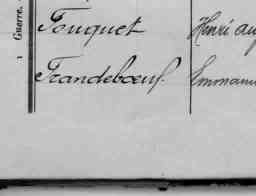 Guerre.
Fouquet Henri Au
Trandebœuf. Emmanu